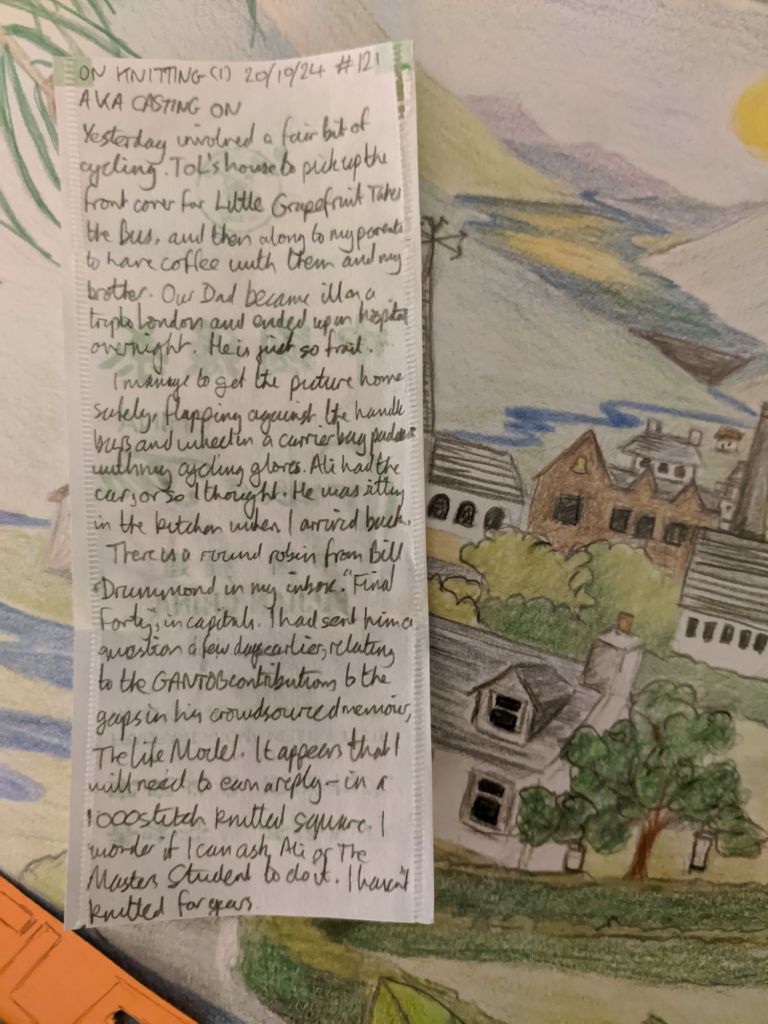 ON KNITTING (1) 20/10/24 #121
AKA CASTING ON
Yesterday involved a fair bit of
cycling. To L's house to pick up the
front cover for Little Grapefruit Takes
the Bus, and then along to my parents
to have coffee with them and my
brother. Our Dad became ill on a
trip to London and ended up in hospital
overnight. He is just so frail.
I manage to get the picture home
safely, flapping against the handle
bars and wheel in a carrier bag padded
with my cycling gloves. Ali had the
car, or so I thought. He was sitting
in the kitchen when I arrived back.
There is a round robin from Bill
Drummond in my inbox. "Final
Forty", in capitals. I had sent him a
question a few days earlier, relating
to the GANTOB contributions to the
gaps in his crowdsourced memoir,
The Life Model. It appears that I
will need to earn a reply - in a
1000 stitch knitted square. I
wonder if I can ask Ali or The
Masters Student to do it. I haven't
knitted for years.